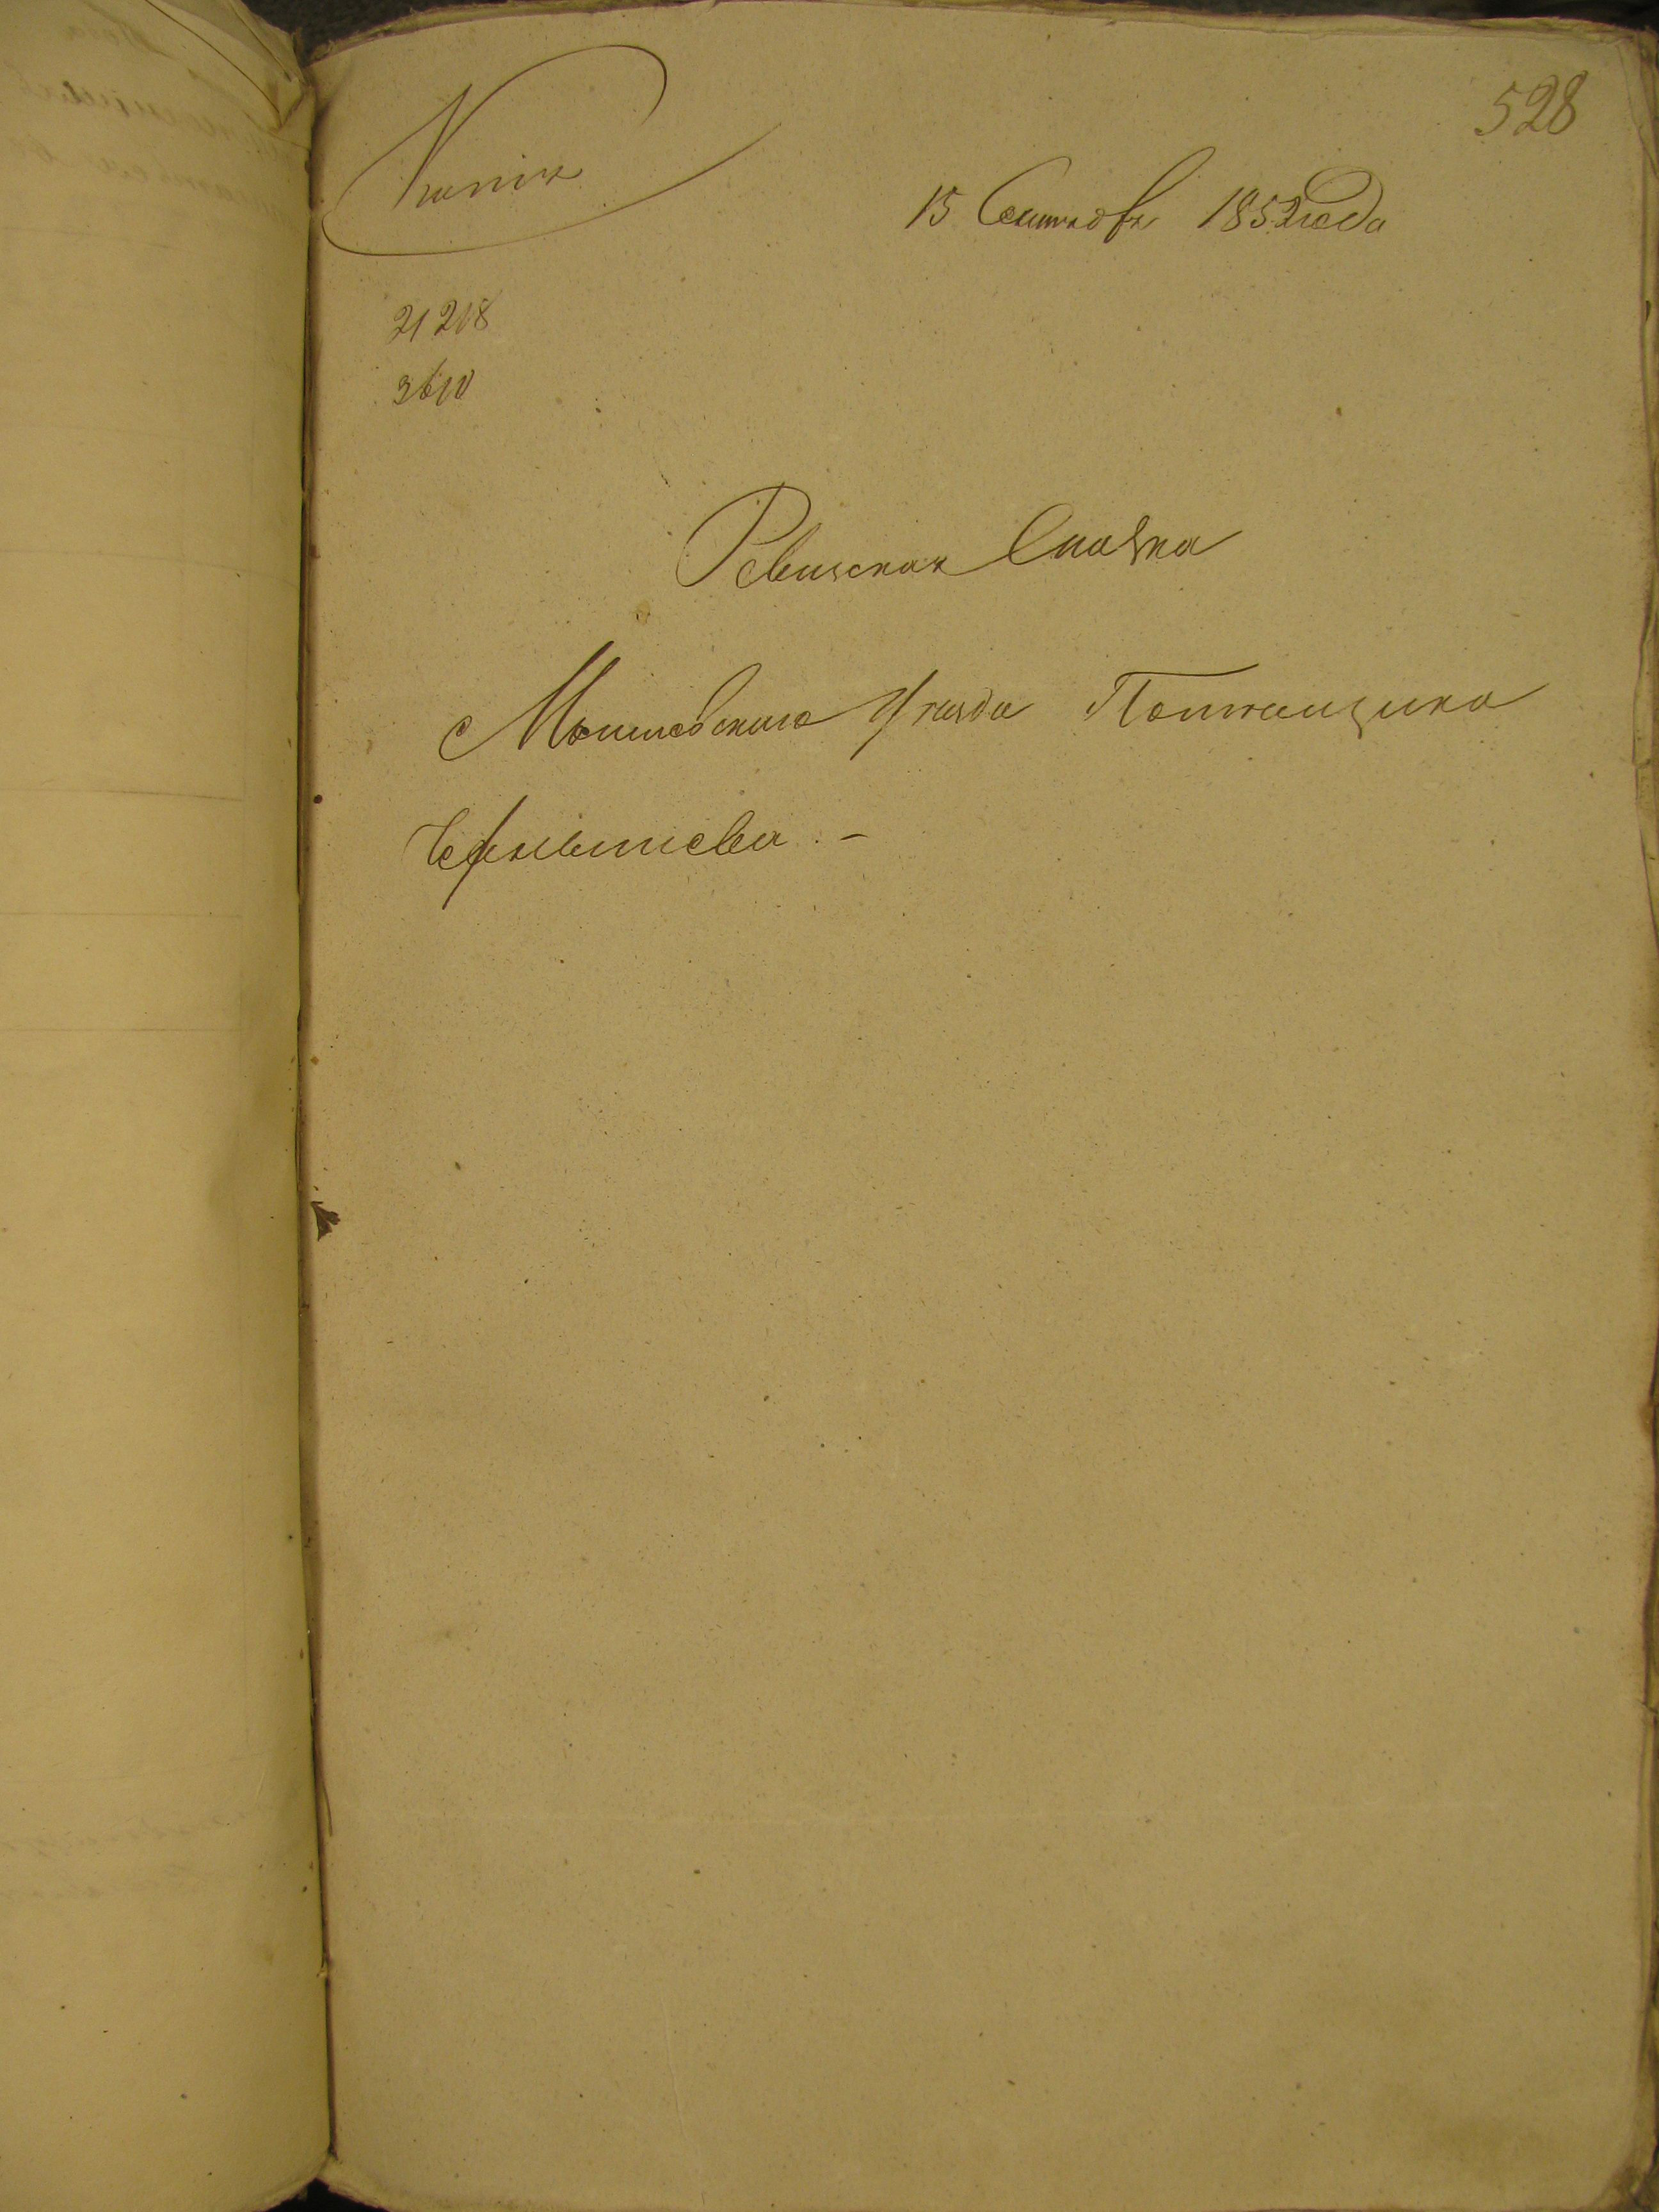 528
Копія
15 Сентября 1852 года
21218
3610
Ревиская Сказка
Мышевскаго Уезда Помещика
Чернышева. -